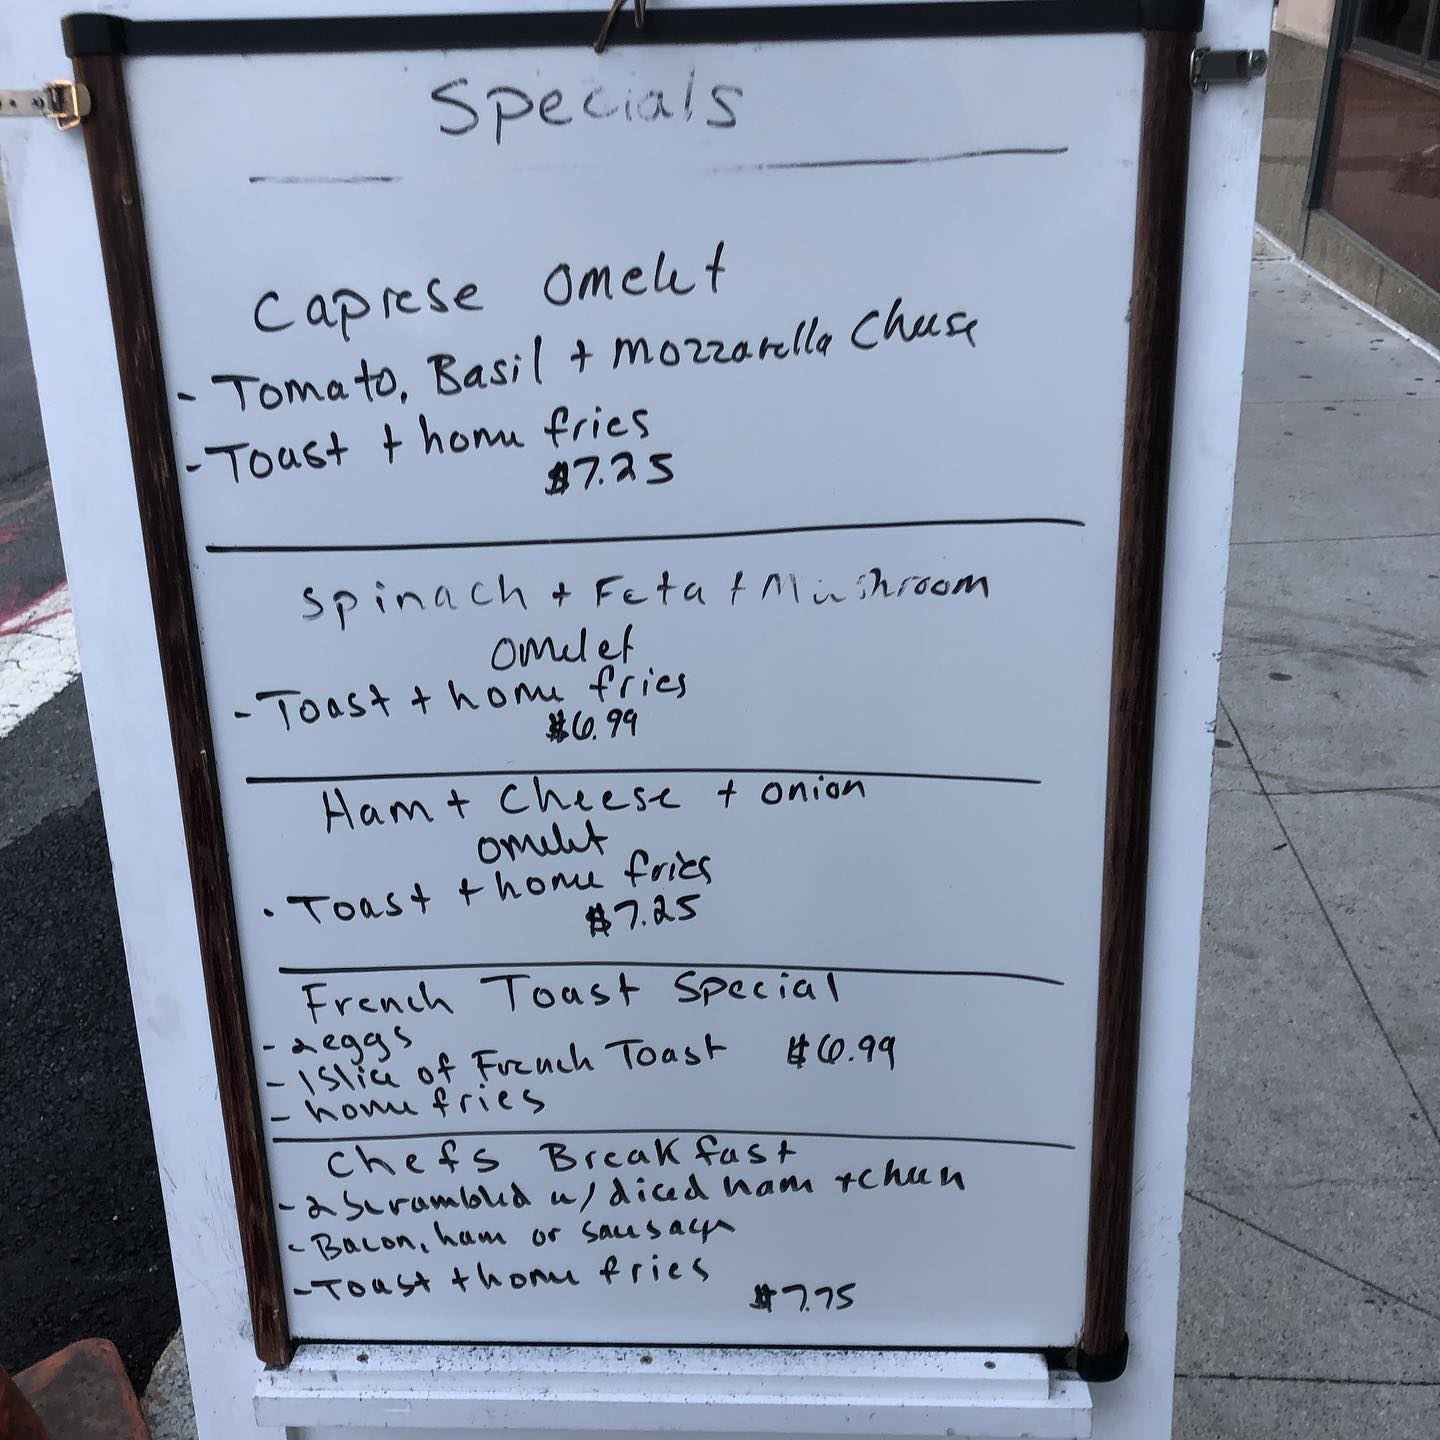 Specials
Caprese Omelet
- Tomato, Basil + Mozzarella Cheese
- Toast + home fries
$7.25
Spinach + Feta + Mushroom
omelet
- Toast + home fries
$6.99
Ham + Cheese + onion
omelet
. Toast + home fries
$7.25
French Toast Special
- 2 eggs
- 1 Slice of French Toast $6.99
- home fries
Chefs Breakfast
- 2 Scrambled w/ diced ham + cheese
- Bacon, ham or sausage
- Toast + home fries
$7.75